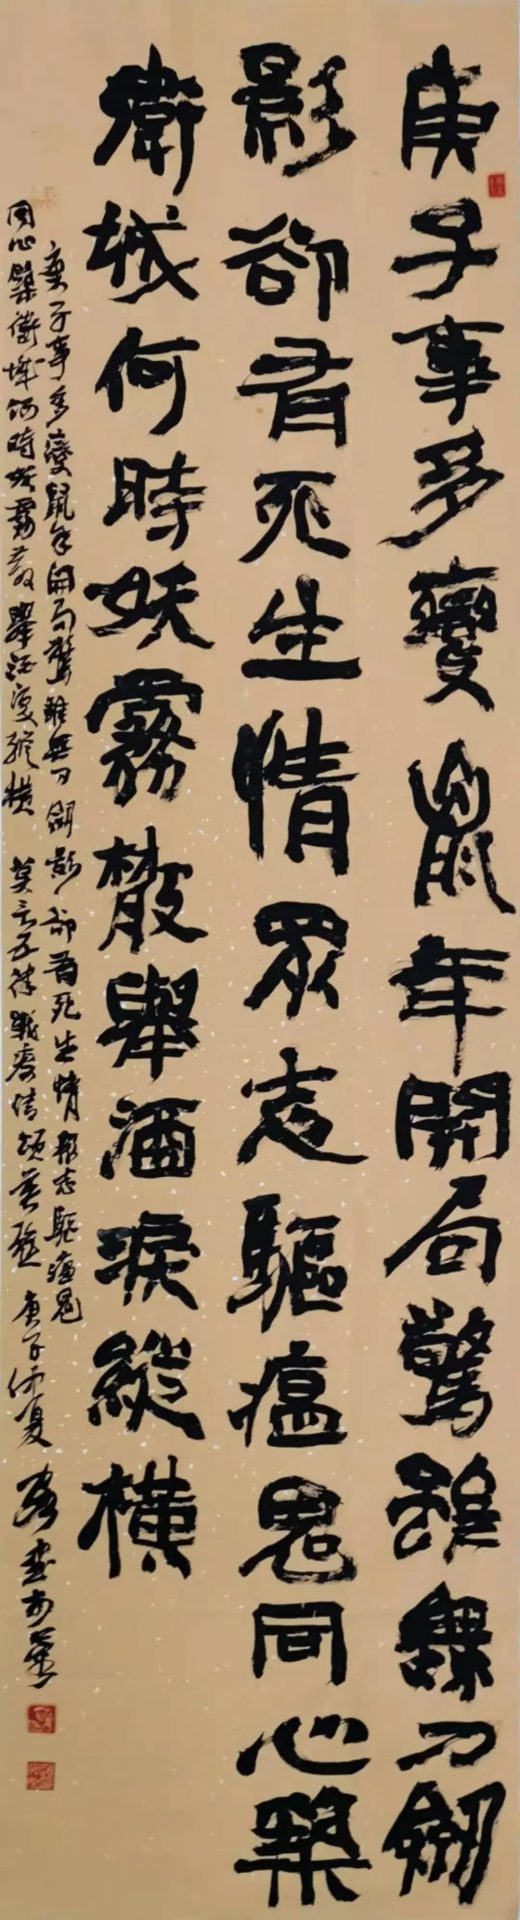 庚子事多變鼠年開局驚雖無刀劍
影卻有死生情眾志驅瘟鬼同心築
衛城何時妖霧散舉酒淚縱橫
庚子事多變鼠年開局驚雖無刀劍影卻有死生情眾志驅瘟鬼
同心築衛城何時妖霧散舉酒淚縱橫 莫言子律戰疫情 庚子仲夏